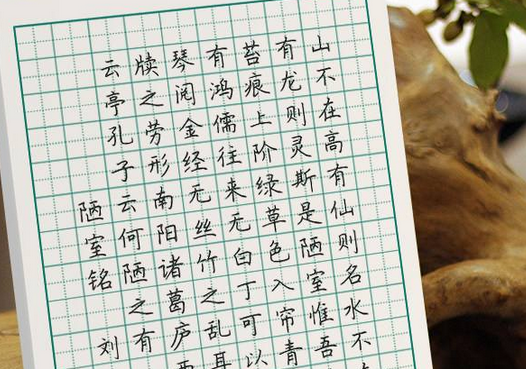 山不在高有仙则名水不
有龙则灵斯是陋室惟吾
苔痕上阶绿草色入帘青
有鸿儒往来无白丁可以
琴阅金经无丝竹之乱耳
牍之劳形南阳诸葛庐西
云亭孔子云何陋之有
陋室铭 刘